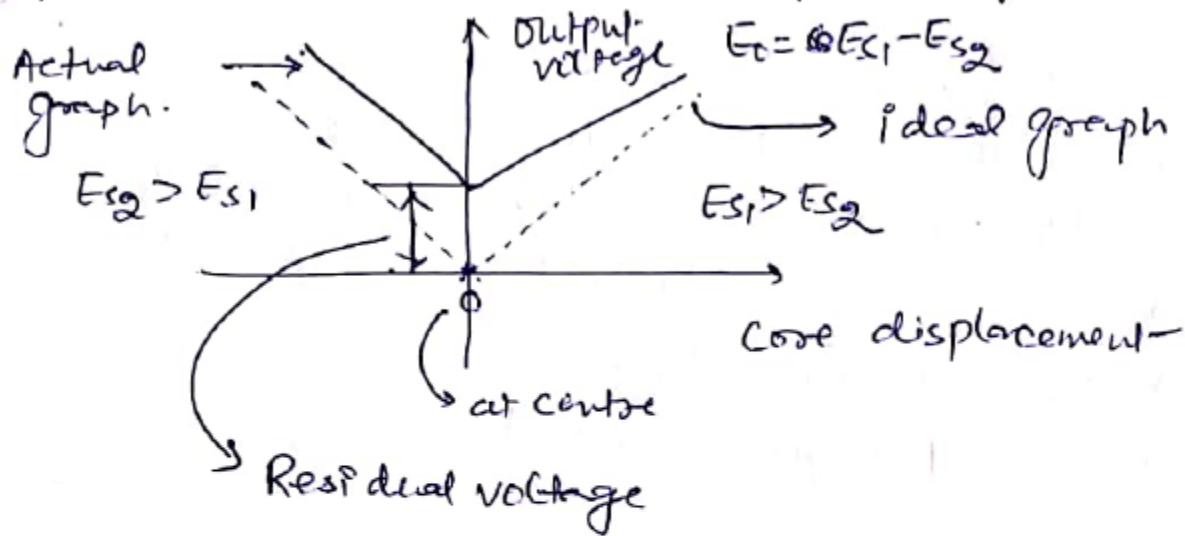 Actual
graph.
Output
voltage
Eτ = Es₁ - Es₂
ideal graph
Es₂ > Es₁
Es₁ > Es₂
O
Core displacement
at centre
Residual voltage